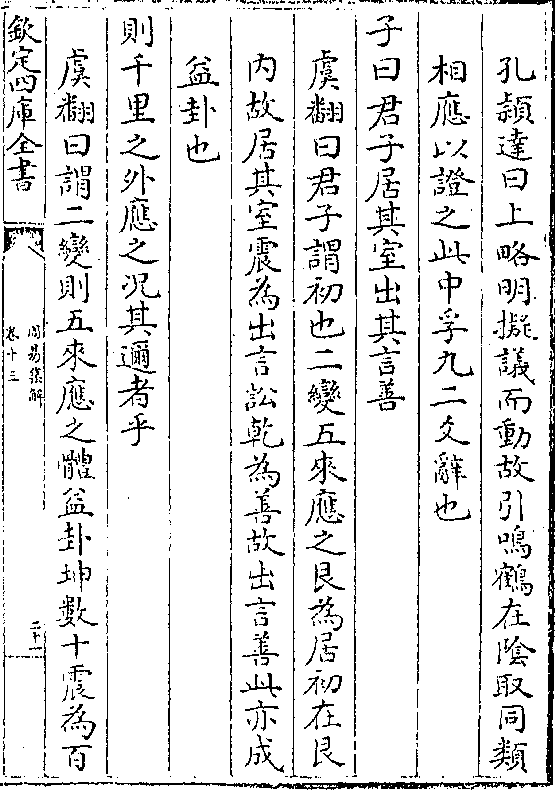 孔頴達曰上略明擬議而動故引鳴鶴在隂取同類
相應以證之此中孚九二爻辭也
子曰君子居其室出其言善
虞翻曰君子謂初也二變五來應之艮為居初在艮
内故居其室震為出言訟乾為善故出言善此亦成
益卦也
則千里之外應之况其邇者乎
虞翻曰謂二變則五來應之體益卦坤數十震為百
欽定四庫全書
周易集解
卷十三
二十一